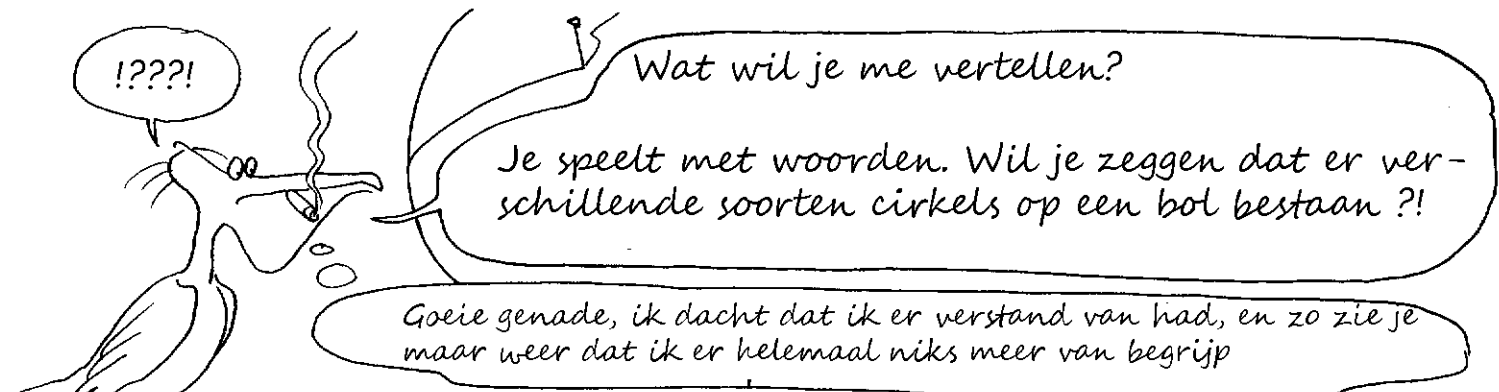 !???!
Wat wil je me vertellen?
Je speelt met woorden. Wil je zeggen dat er ver-
schillende soorten cirkels op een bol bestaan ?!
Goeie genade, ik dacht dat ik er verstand van had, en zo zie je
maar weer dat ik er helemaal niks meer van begrijp